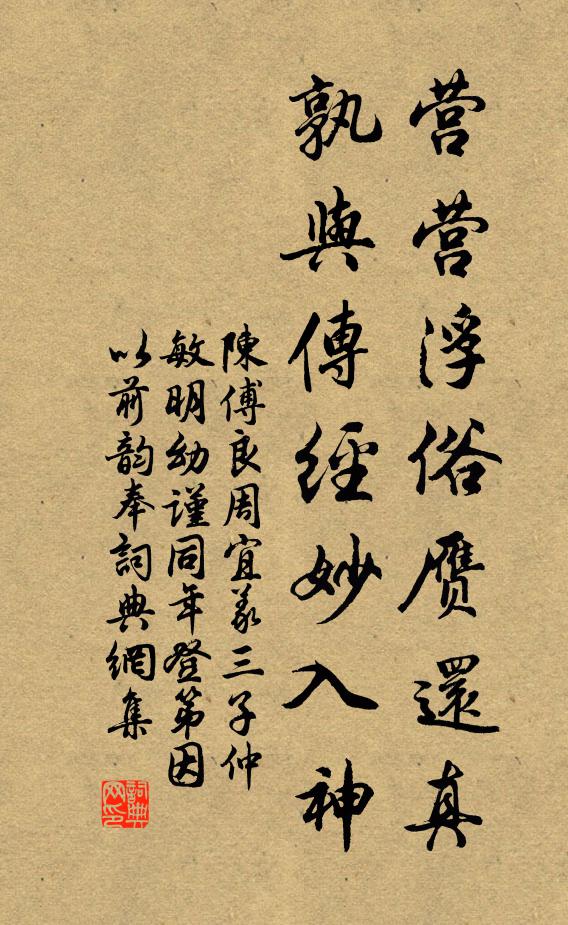 营营浮俗赝還真
孰與傳經妙入神
陳傅良周宜义三子仲
敏明幼謹同年登第因
以前韵奉詞典網集
詞典网印